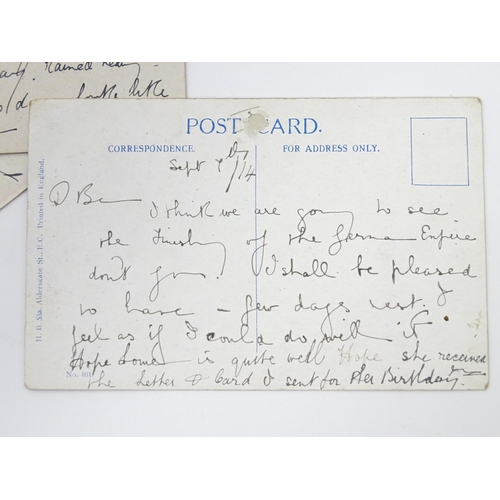 ained heavy
little
POST CARD.
CORRESPONDENCE.
FOR ADDRESS ONLY.
Sept 9th/14
D Be
I think we are going to see
the finish of the German Empire
don't you. I shall be pleased
to have a few days rest. I
feel as if I could do with it
Hope is quite well Hope she received
the Letter & Card I sent for Her Birthday
H. B. Ltd. Aldersgate St., E.C. Printed in England.
No.